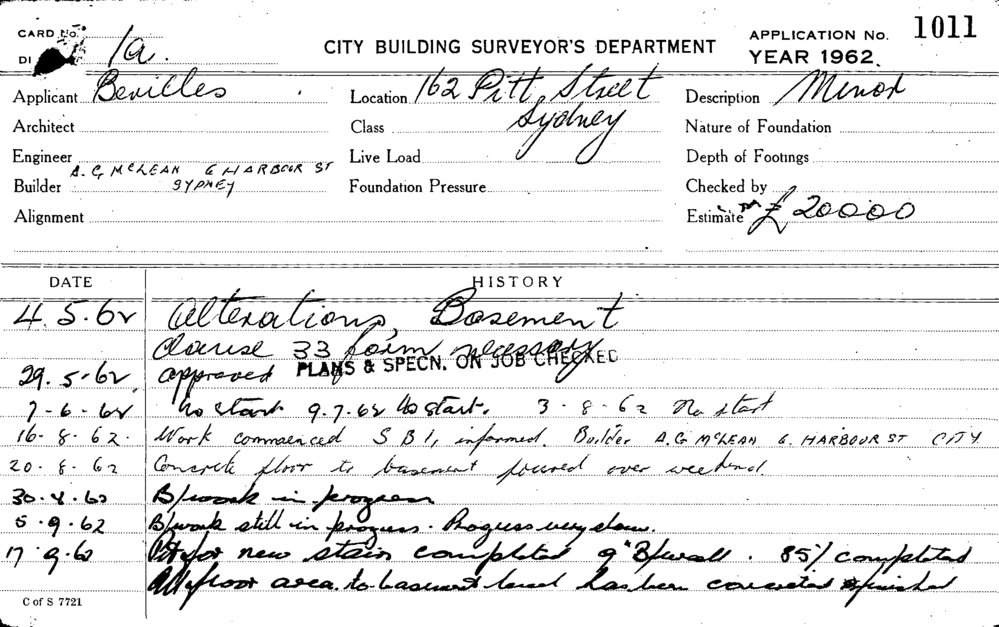 CARD No.
1a.
CITY BUILDING SURVEYOR'S DEPARTMENT
APPLICATION No. 1011
DI
YEAR 1962.
Applicant Bevilles
Location 162 Pitt Street
Sydney
Description Minor
Architect
Class
Nature of Foundation
Engineer
Live Load
Depth of Footings
A. G. McLEAN 6 HARBOUR ST
SYDNEY
Builder
Foundation Pressure
Checked by
Alignment
Estimate £20000
DATE
HISTORY
4.5.62 Alterations, Basement
Clause 33 form necessary
29.5.62 approved PLANS & SPECN. ON JOB CHECKED
7-6-62 No start 9.7.62 No start. 3-8-62 No start
16-8-62. Work commenced S B I, informed. Builder A.G McLEAN 6. HARBOUR ST CITY
20-8-62 Concrete floor to basement poured over weekend
30.8.62 B/work in progress
5.9.62 B/work still in progress. Progress very slow.
17 9.62 Pit for new stairs completed 9" B/wall. 85% completed
All floor area to basement level has been concreted & finished
C of S 7721